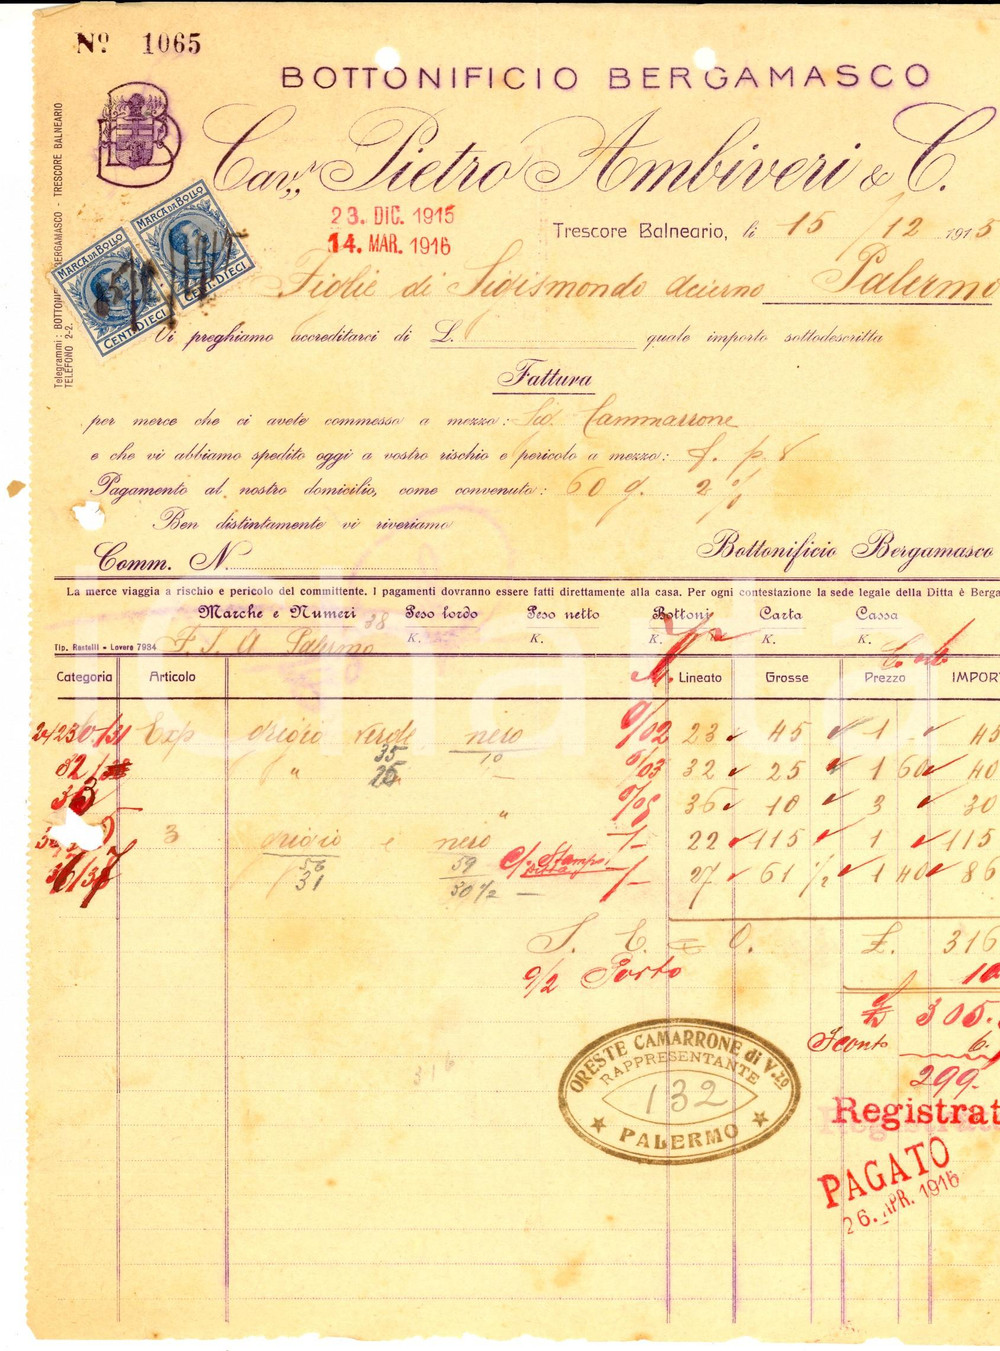 Nº 1065
BOTTONIFICIO BERGAMASCO
Cav. Pietro Ambiveri & C.
23. DIC. 1915
14. MAR. 1916
Trescore Balneario, li 15/12 1915
MARCA DA BOLLO
CENT. DIECI
MARCA DA BOLLO
CENT. DIECI
Figlie di Sigismondo Palermo
Vi preghiamo accreditarci di L. quale importo sottodescritta
Fattura
per merce che ci avete commesso a mezzo: Sig. Cammarrone
e che vi abbiamo spedito oggi a vostro rischio e pericolo a mezzo:
Pagamento al nostro domicilio, come convenuto: 60 g. 2%
Ben distintamente vi riveriamo
Comm. N. Bottonificio Bergamasco
La merce viaggia a rischio e pericolo del committente. I pagamenti dovranno essere fatti direttamente alla casa. Per ogni contestazione la sede legale della Ditta è Berga
Marche e Numeri Peso lordo Peso netto Bottoni Carta Cassa
K. K. K. K. K.
Tip. Restelli - Lovere 7934
F. S. A Palermo 38
Categoria Articolo Lineato Grosse Prezzo IMPOR
Exp grigio verde nero 0/02 23 45 1 45
35 10
" 0/03 32 25 1 60 40
" 36 10 3 30
3 grigio e nero 22 115 1 115
56 59
31 30 1/2
27 61 1/2 1 40 86
S. E. & O. £. 316
Porto 10
305.
Sconto 6.
299
316
ORESTE CAMARRONE di V.zo
RAPPRESENTANTE
132
PALERMO
Registrat
PAGATO
26. APR. 1916
Telegrammi: BERGAMASCO - TRESCORE BALNEARIO
TELEFONO 2-2.